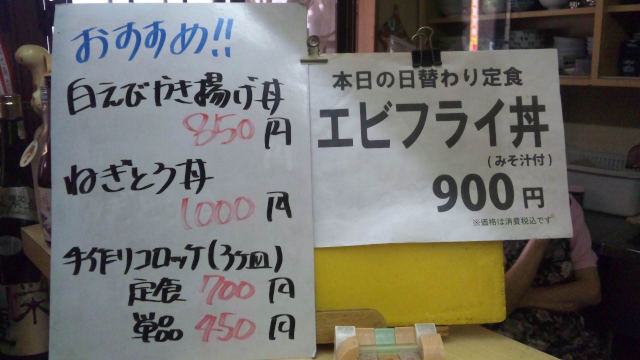 おすすめ!!
白えびかき揚げ丼
850円
ねぎとろ丼
1000円
手作りコロッケ(3ヶ皿)
定食 700円
単品 450円
本日の日替わり定食
エビフライ丼
(みそ汁付)
900円
※価格は消費税込です